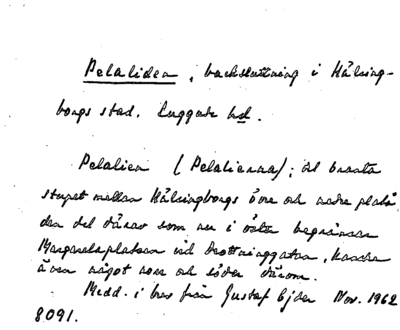 Pelaliden, backsluttning i Hälsing-
borgs stad. Luggude hd.
Pelalien (Pelalierna); det branta
stupet mellan Hälsingborgs övre och nedre platå,
den del därav som nu i öster begränsar
Margaretaplatsen vid Drottninggatan, kanske
även något norr och söder därom.
Medd. i brev från Gustaf Ejder Nov. 1962
8091.